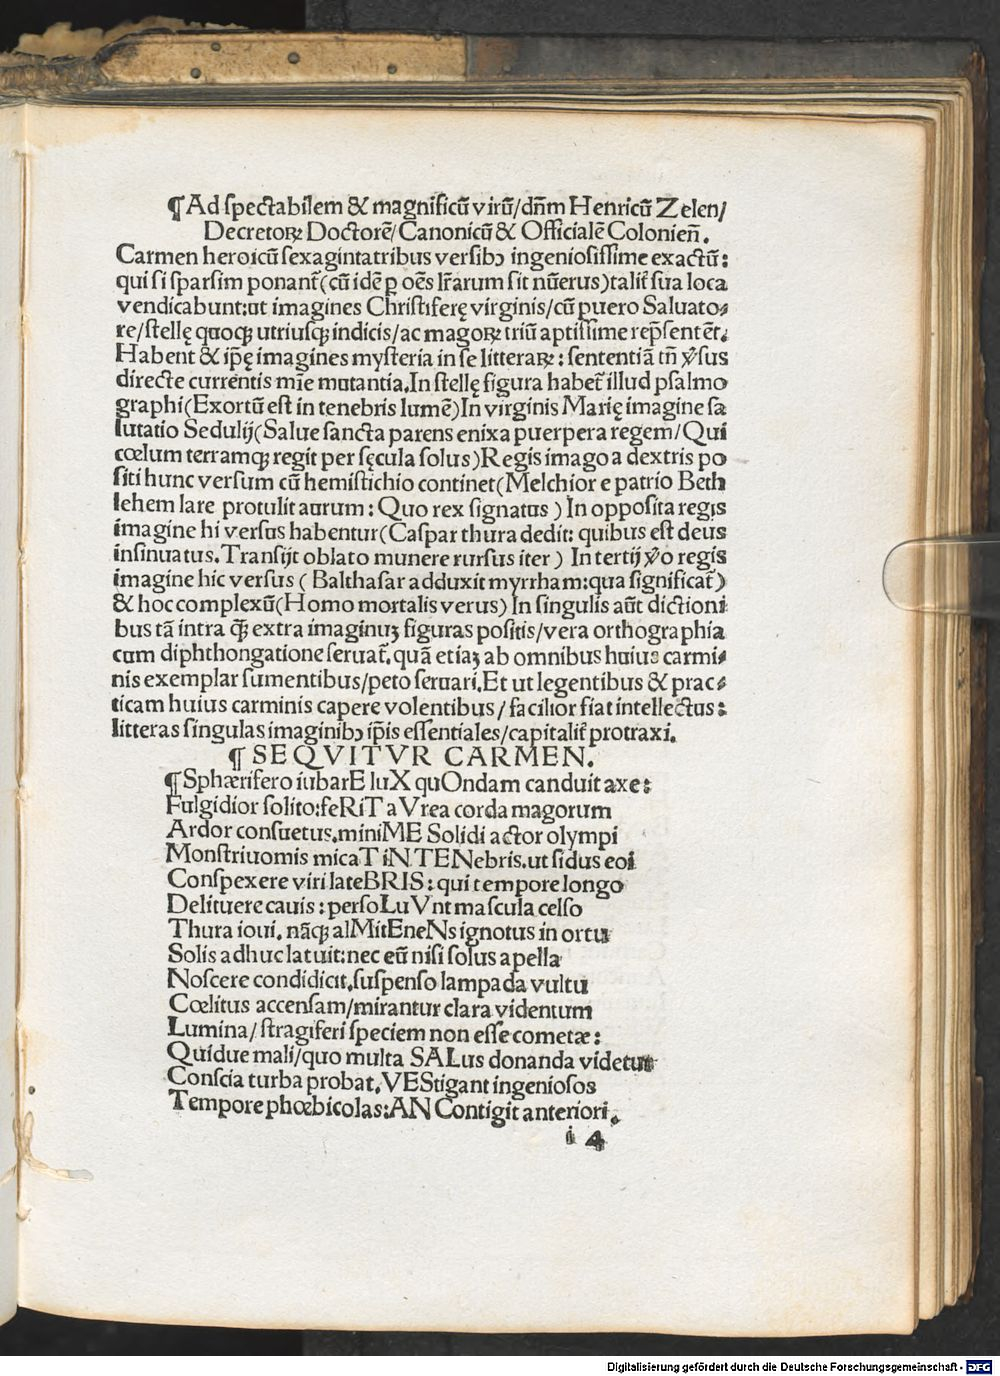 ¶Ad spectabilem & magnificū virū/dn̄m Henricū Zelen/
Decretoꝝ Doctorē/Canonicū & Officialē Colonien̄.
Carmen heroicū sexagintatribus versibꝰ ingeniosissime exactū:
qui si sparsim ponant᷑(cū idē ꝑ oēs lr̄arum sit nūerus)talit᷑ sua loca
vendicabunt:ut imagines Christiferę virginis/cū puero Saluato⸗
re/stellę quoqꝫ utriusqꝫ indicis/ac magoꝝ triū aptissime rep̄sentēt.
Habent & ip̄ę imagines mysteria in se litteraꝝ: sententiā tn̄ v̓sus
directe currentis mīe mutantia.In stellę figura habet᷑ illud psalmo
graphi(Exortū est in tenebris lumē)In virginis Marię imagine sa
lutatio Sedulij(Salue sancta parens enixa puerpera regem/Qui
cœlum terramqꝫ regit per sęcula solus)Regis imago a dextris po
siti hunc versum cū hemistichio continet(Melchior e patrio Beth
lehem lare protulit aurum: Quo rex signatus ) In opposita regis
imagine hi versus habentur(Caspar thura dedit: quibus est deus
insinuatus.Transijt oblato munere rursus iter ) In tertij v̓o regis
imagine hic versus ( Balthasar adduxit myrrham:qua significat᷑)
& hoc complexū(Homo mortalis verus) In singulis aūt dictioni
bus tā intra qꝫ̄ extra imaginuꝫ figuras positis/vera orthographia
cum diphthongatione seruat᷑.quā etiaꝫ ab omnibus huius carmi⸗
nis exemplar sumentibus/peto seruari.Et ut legentibus & prac⸗
ticam huius carminis capere volentibus/facilior fiat intellectus:
litteras singulas imaginibꝰ ip̄is essentiales/capitalit᷑ protraxi.
¶ SEQVITVR CARMEN.
¶Sphærifero iubarE luX quOndam canduit axe:
Fulgidior solito:feRiT aVrea corda magorum
Ardor consuetus.miniME Solidi actor olympi
Monstriuomis micaT iN TENebris.ut sidus eoi
Conspexere viri lateBRIS: qui tempore longo
Delituere cauis:persoLuVnt mascula celso
Thura ioui. nāqꝫ alMitEneNs ignotus in ortu
Solis adhuc latuit:nec eū nisi solus apella
Noscere condidicit.suspenso lampada vultu
Cœlitus accensam/mirantur clara videntum
Lumina/stragiferi speciem non esse cometæ:
Quidue mali/quo multa SALus donanda videtur
Conscia turba probat.VEStigant ingeniosos
Tempore phœbicolas:AN Contigit anteriori.
i 4
Digitalisierung gefördert durch die Deutsche Forschungsgemeinschaft - DFG